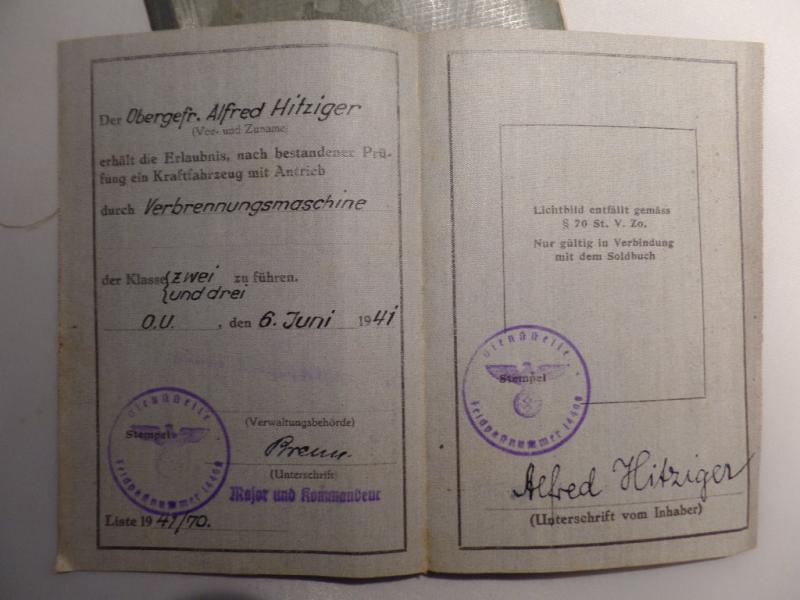 Der Obergefr. Alfred Hitziger
(Vor- und Zuname)
erhält die Erlaubnis, nach bestandener Prü-
fung ein Kraftfahrzeug mit Antrieb
durch Verbrennungsmaschine
der Klasse zwei zu führen.
und drei
O.U., den 6. Juni 1941
Dienststelle
Stempel
Feldpostnummer
(Verwaltungsbehörde)
(Unterschrift)
Major und Kommandeur
Liste 1941/70.
Lichtbild entfällt gemäss
§ 70 St. V. Zo.
Nur gültig in Verbindung
mit dem Soldbuch
Dienststelle
Stempel
Feldpostnummer
Alfred Hitziger
(Unterschrift vom Inhaber)